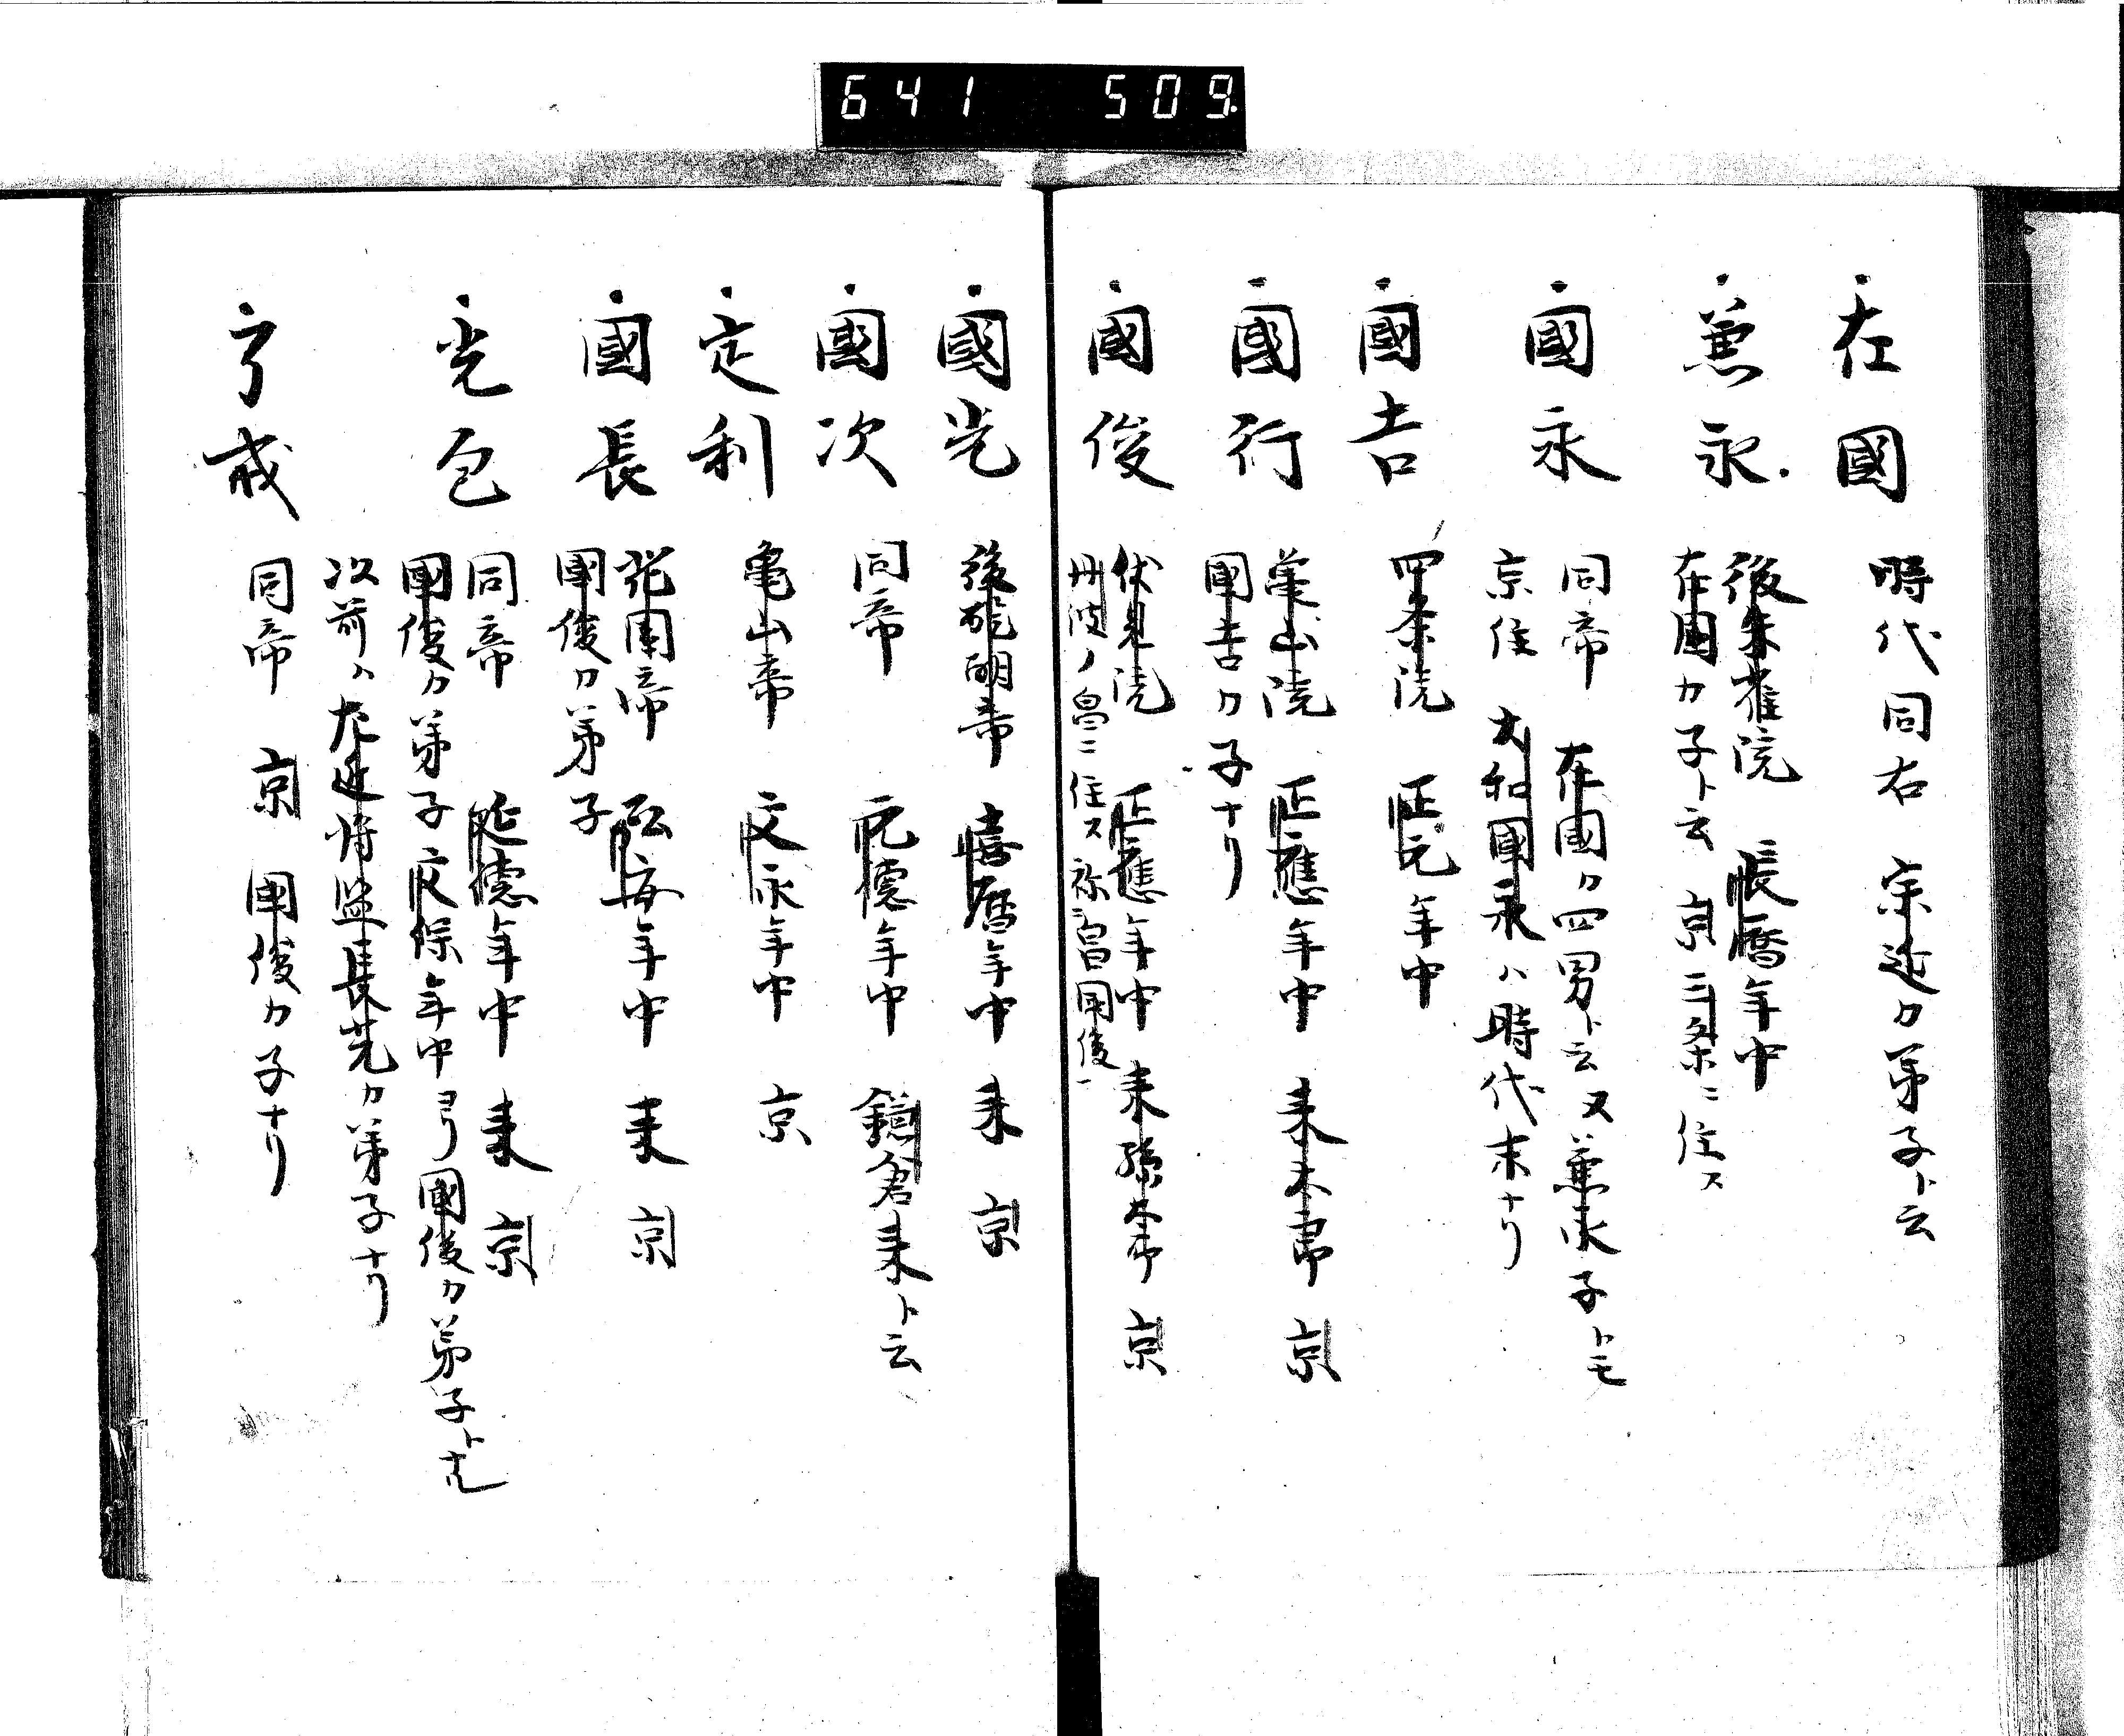 641 509
在國 時代同右 宗近カ弟子ト云
兼永 後朱雀院 長暦年中
在國カ子ト云 京三条ニ住ス
國永 同帝 在國カ四男ト云又兼永子トモ
京住 大和國永ハ時代末ナリ
國吉 四条院 正元年中
國行 亀山院 正應年中 来太郎 京
國吉カ子ナリ
國俊 伏見院 正應年中 来孫太郎 京
丹波ノ 住ス 國俊
國光 後醍醐帝 嘉暦年中 来 京
國次 同帝 元徳年中 鎌倉来ト云
定利 亀山帝 文永年中 京
國長 花園帝 弘安年中 来 京
國俊カ弟子
光包 同帝 延慶年中 来 京
國俊カ弟子 文保年中 國俊カ弟子ト
次前ハ左近将監長光カ弟子ナリ
了戒 同帝 京 國俊カ子ナリ